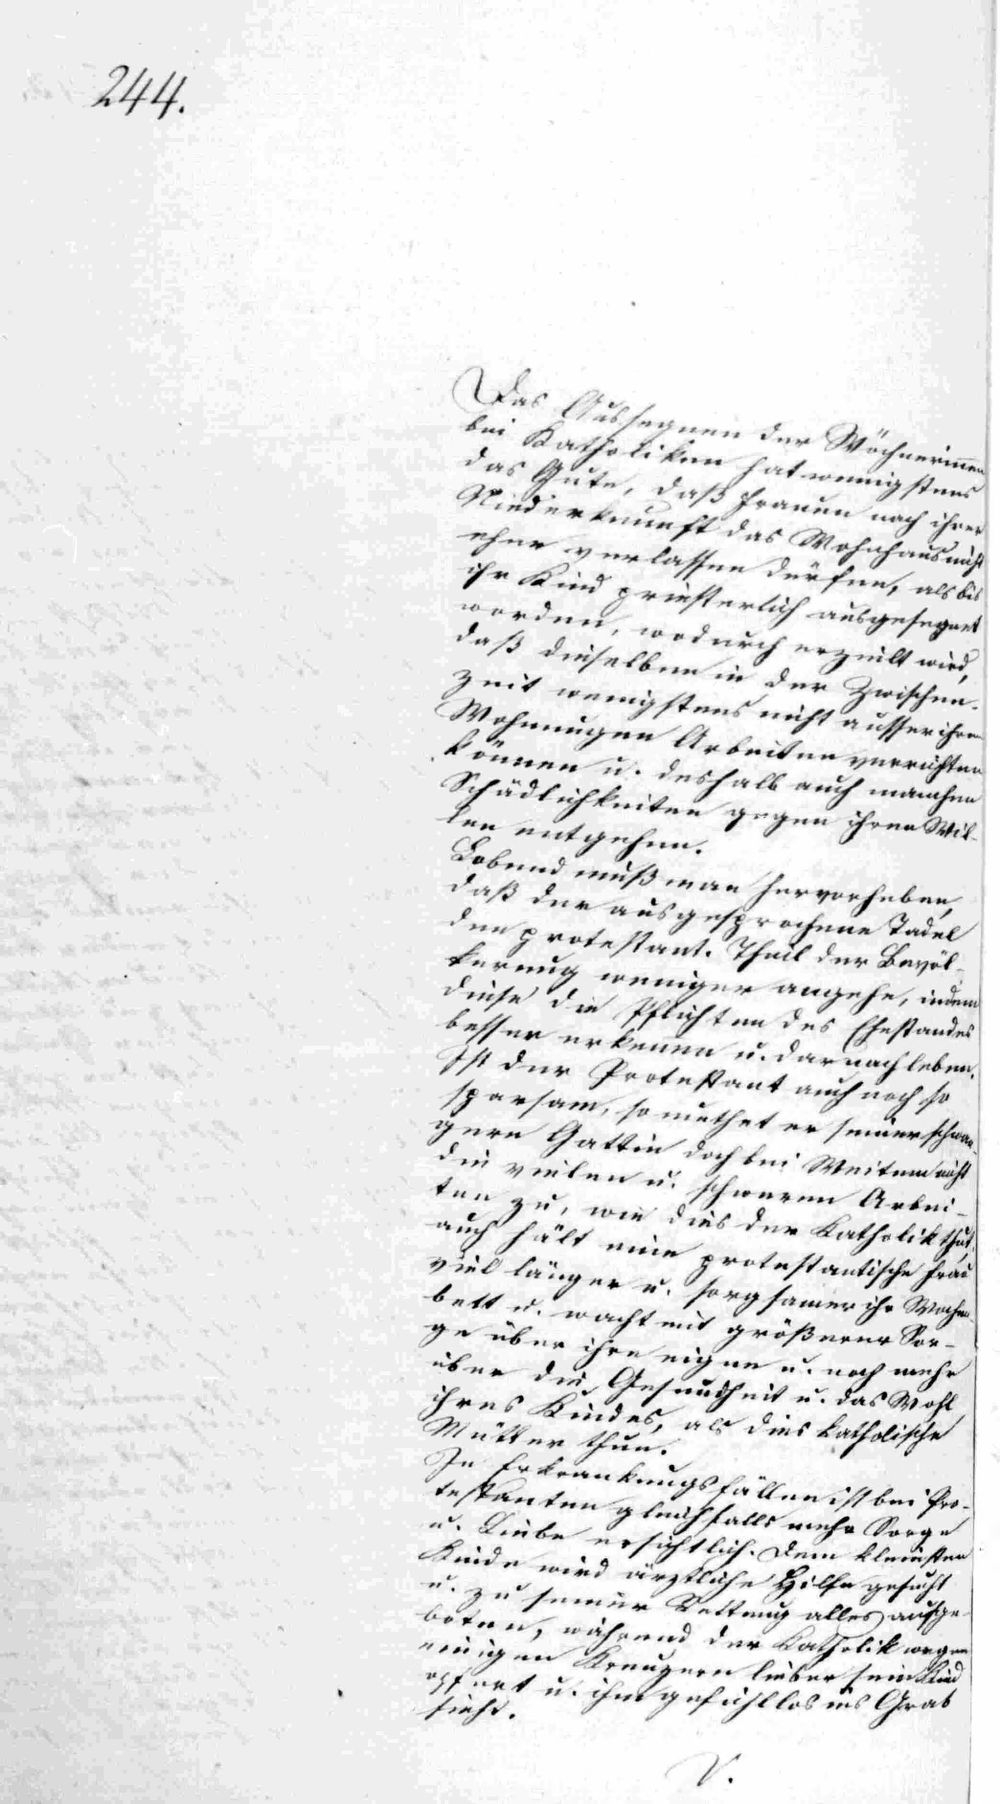 244.
Das Aussegnen der Wöchnerinnen
bei Katholiken hat wenigstens
das Gute, daß Frauen nach ihrer
Niederkunft das Wohnhaus nicht
eher verlassen dürfen, als bis
ihr Kind priesterlich ausgesegnet
worden, wodurch erzielt wird,
daß dieselben in der Zwischen-
zeit wenigstens nicht ausser ihren
Wohnungen Arbeiten verrichten
können u. deshalb auch manchen
Schädlichkeiten gegen ihren Wil-
len entgehen.
Lobend muß man hervorheben,
daß der ausgesprochene Tadel
den protestant. Theil der Bevöl-
kerung weniger angehe, indem
diese die Pflichten des Ehestandes
besser erkennen u. darnach leben.
Ist der Protestant auch noch so
sparsam, so muthet er seiner schwan-
gern Gattin doch bei Weitem nicht
die vielen u. schweren Arbei-
ten zu, wie dies der Katholik thut,
auch hält eine protestantische Frau
viel länger u. sorgsamer ihr Wochen-
bett u. wacht mit größerer Sor-
ge über ihre eigne u. noch mehr
über die Gesundheit u. das Wohl
ihres Kindes, als dies katholische
Mütter thun.
In Erkrankungsfällen ist bei Pro-
testanten gleichfalls mehr Sorge
u. Liebe ersichtlich. Dem kleinsten
Kinde wird ärztliche Hilfe gesucht
u. zu seiner Rettung alles aufge-
boten, während der Katholik wegen
einigen Kreuzern lieber sein Kind
opfert u. ihm gefühllos ins Grab
sieht.
V.